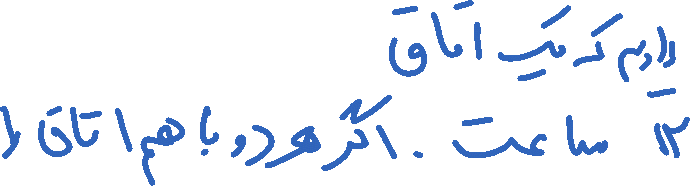 داریم که یک اتاق
۱۲ ساعت . اگر هر دو با هم اتاق را